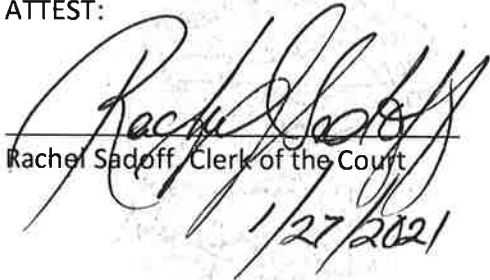 ATTEST:
Rachel Sadoff
Rachel Sadoff, Clerk of the Court
1/27/2021